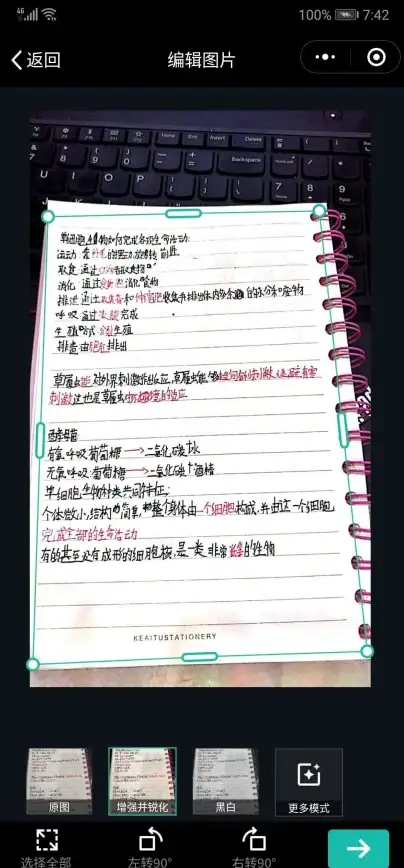 4G 100% 7:42
返回 编辑图片
Home End Insert Delete
7 8 9 0 Backspace
U I O P 7 8 9
单细胞生物如何完成各项生命活动:
运动:靠纤毛的摆动,旋转前进
取食:通过口沟
消化:通过食物泡消化食物
排泄:通过表膜和伸缩泡收集并排出体内多余的水分和废物
呼吸:通过表膜完成
生殖方式:分裂生殖
排遗:由胞肛排出
草履虫能对外界刺激作出反应,草履虫能够趋向有利刺激,逃避有害
刺激这也是草履虫的反应
酵母菌
有氧呼吸:葡萄糖→二氧化碳+水
无氧呼吸:葡萄糖→二氧化碳+酒精
单细胞生物种类共同特征:
个体微小,结构简单,整个身体由一个细胞构成,并由这一个细胞,
完成全部的生命活动
有的甚至没有成形的细胞核,是一类非常的生物
KEAITUSTATIONERY
原图 增强并锐化 黑白 更多模式
选择全部 左转90° 右转90°